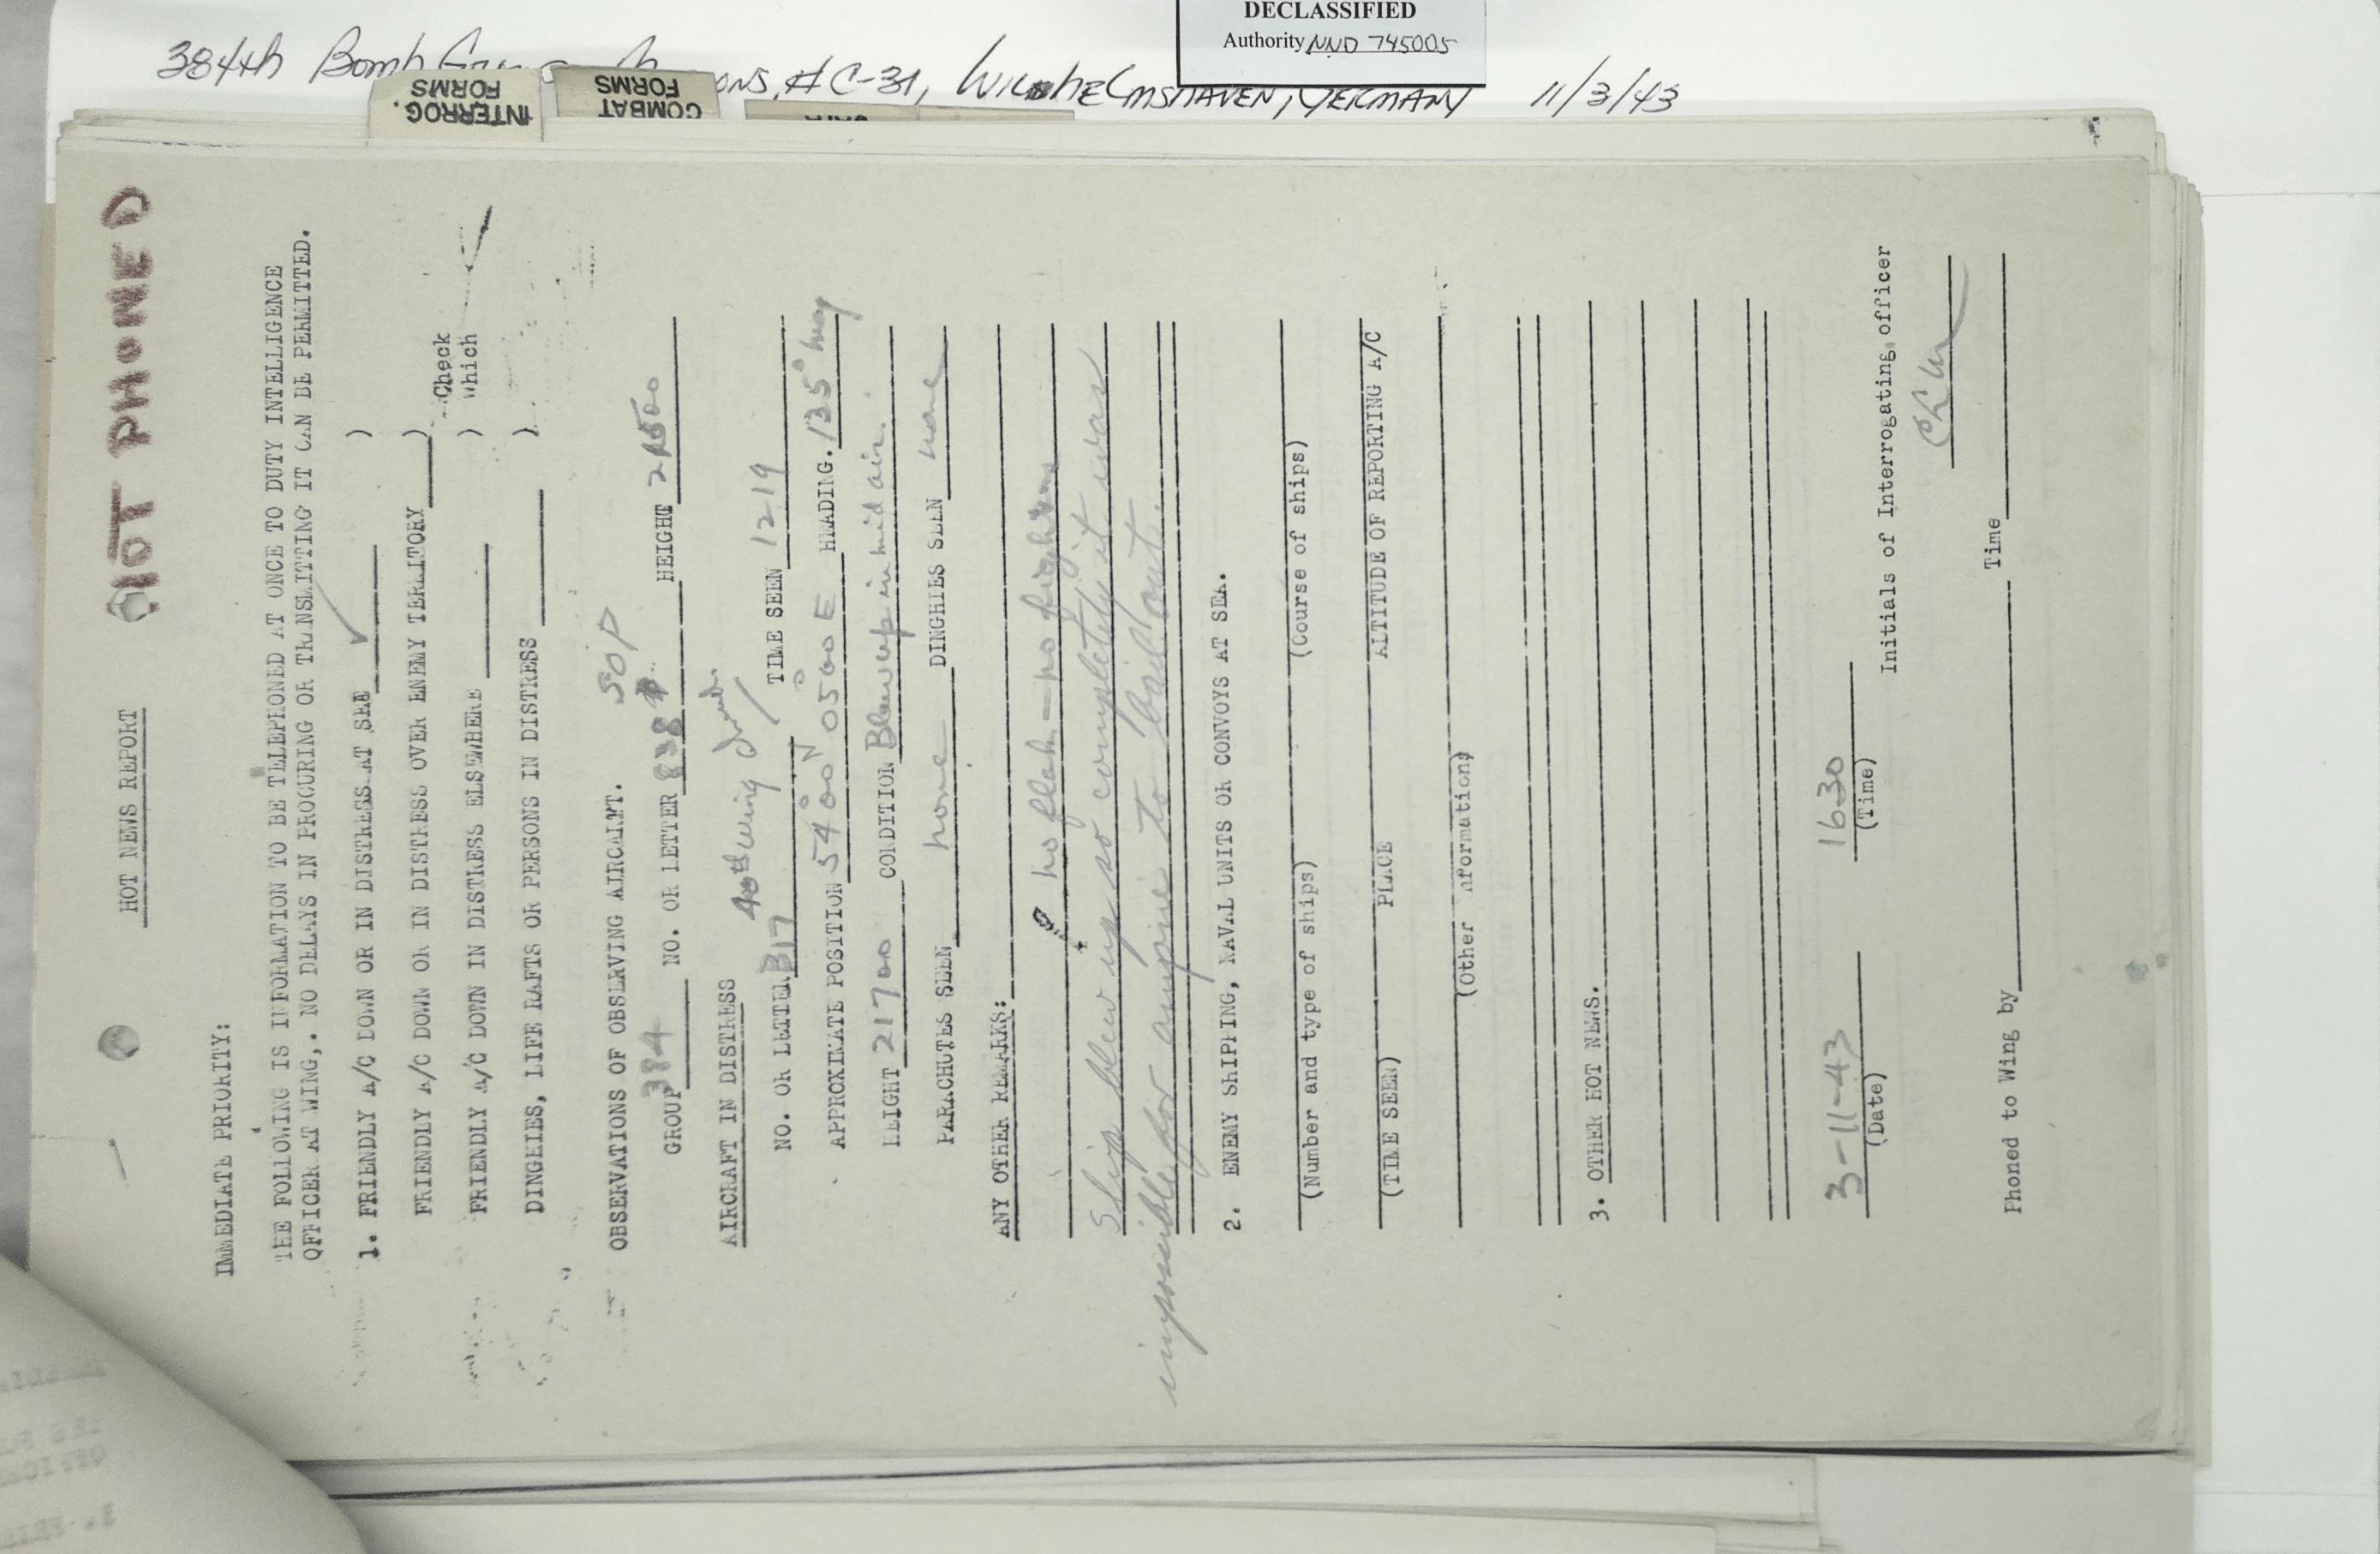 DECLASSIFIED
Authority NND 745005
384th Bomb
ONS, # C-31, WILHELMSHAVEN, GERMANY 11/3/43
INTERROG.
FORMS
COMBAT
FORMS
NOT PHONED
HOT NEWS REPORT
IMMEDIATE PRIORITY:
THE FOLLOWING IS INFORMATION TO BE TELEPHONED AT ONCE TO DUTY INTELLIGENCE
OFFICER AT WING,. NO DELAYS IN PROCURING OR TRANSMITTING IT CAN BE PERMITTED.
1. FRIENDLY A/C DOWN OR IN DISTRESS AT SEA ✓ )
FRIENDLY A/C DOWN OR IN DISTRESS OVER ENEMY TERRITORY ) Check
FRIENDLY A/C DOWN IN DISTRESS ELSEWHERE ) which
DINGHIES, LIFE RAFTS OR PERSONS IN DISTRESS )
OBSERVATIONS OF OBSERVING AIRCRAFT. SOP
GROUP 384 NO. OR LETTER 838 HEIGHT 21500
AIRCRAFT IN DISTRESS
NO. OR LETTER B17 wing TIME SEEN 1219
APPROXIMATE POSITION 54°00'N 0500 E HEADING. 135° mag
HEIGHT 21700 CONDITION Blew up in mid air.
PARACHUTES SEEN none DINGHIES SEEN none
ANY OTHER REMARKS:
no flak - no fighters
Ship blew up so completely it was
impossible for anyone to bail out.
2. ENEMY SHIPPING, NAVAL UNITS OR CONVOYS AT SEA.
(Number and type of ships) (Course of ships)
(TIME SEEN) PLACE ALTITUDE OF REPORTING A/C
(Other information)
3. OTHER HOT NEWS.
3-11-43 1630
(Date) (Time)
Initials of Interrogating officer
Phoned to Wing by Time